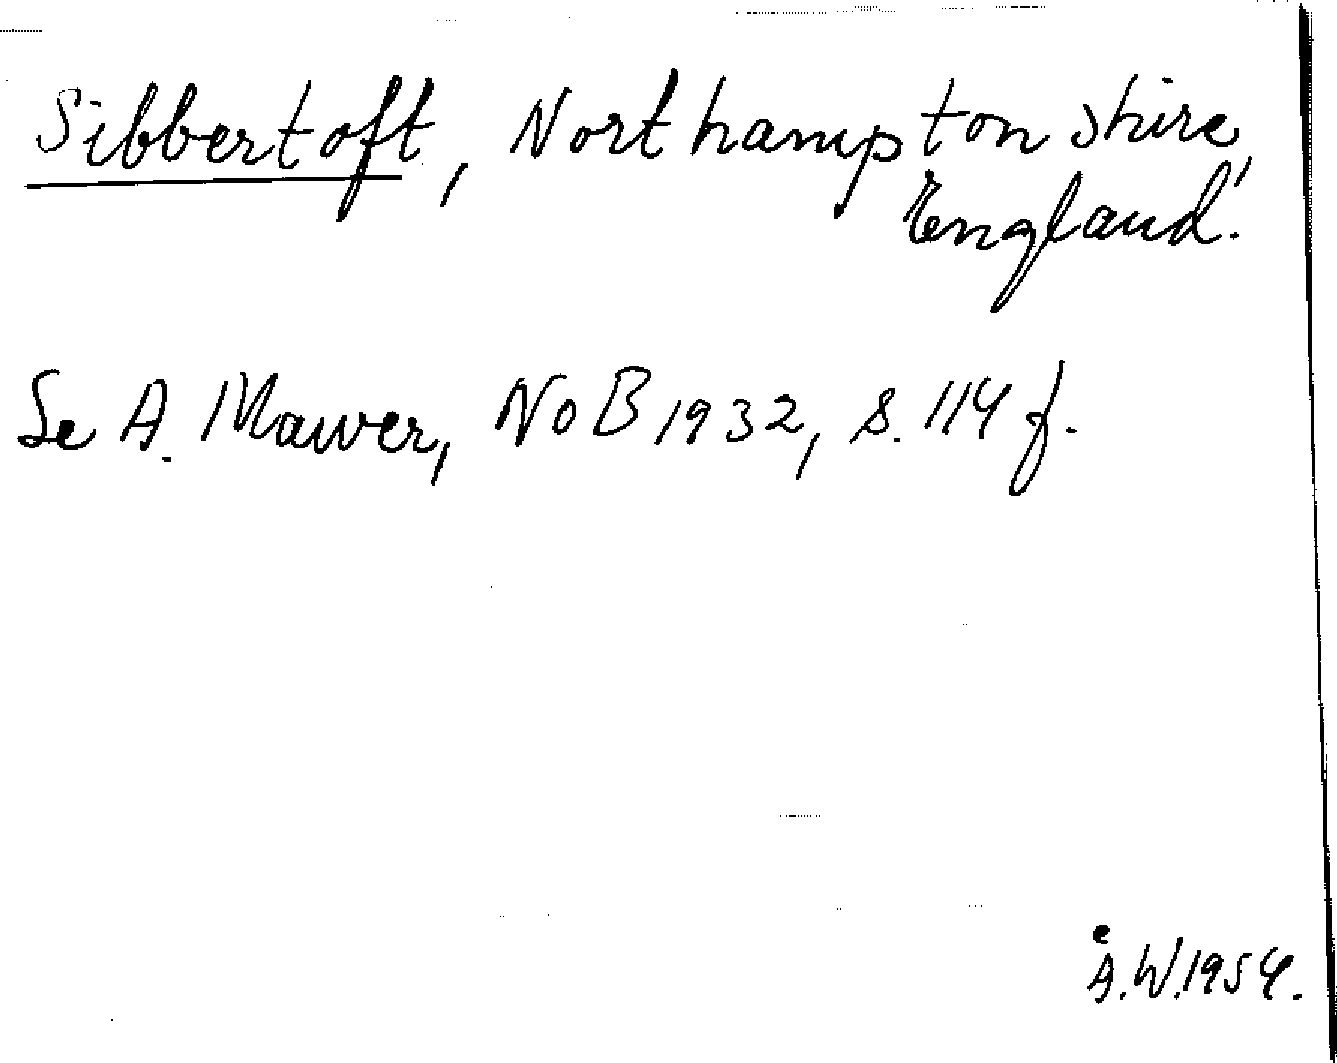 Sibbertoft, Northamptonshire,
England.
Se A. Mawer, NoB 1932, s. 114 f.
Å.W. 1954.